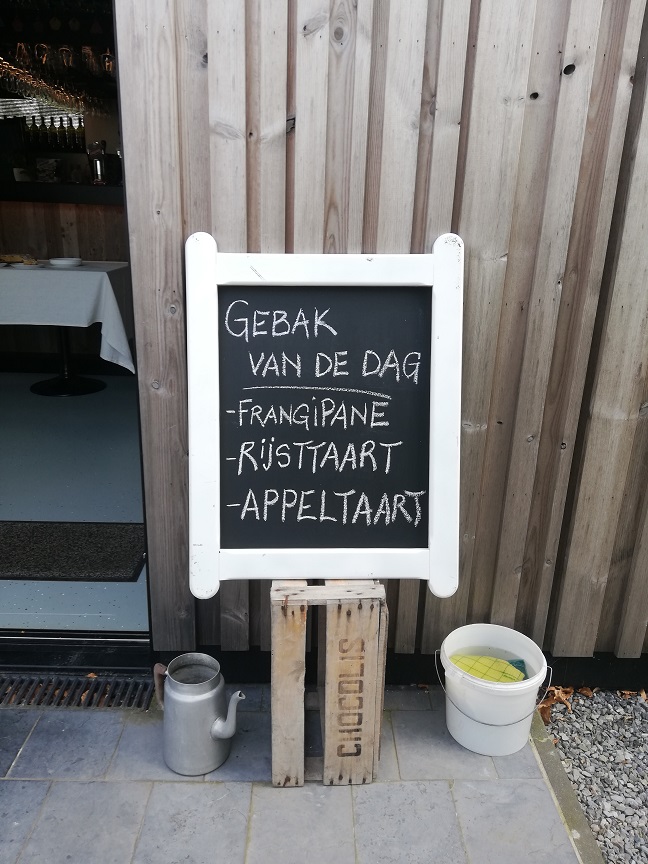 GEBAK
VAN DE DAG
-FRANGiPANE
-RijSTTAART
-APPELTAART
CHOCOLIS